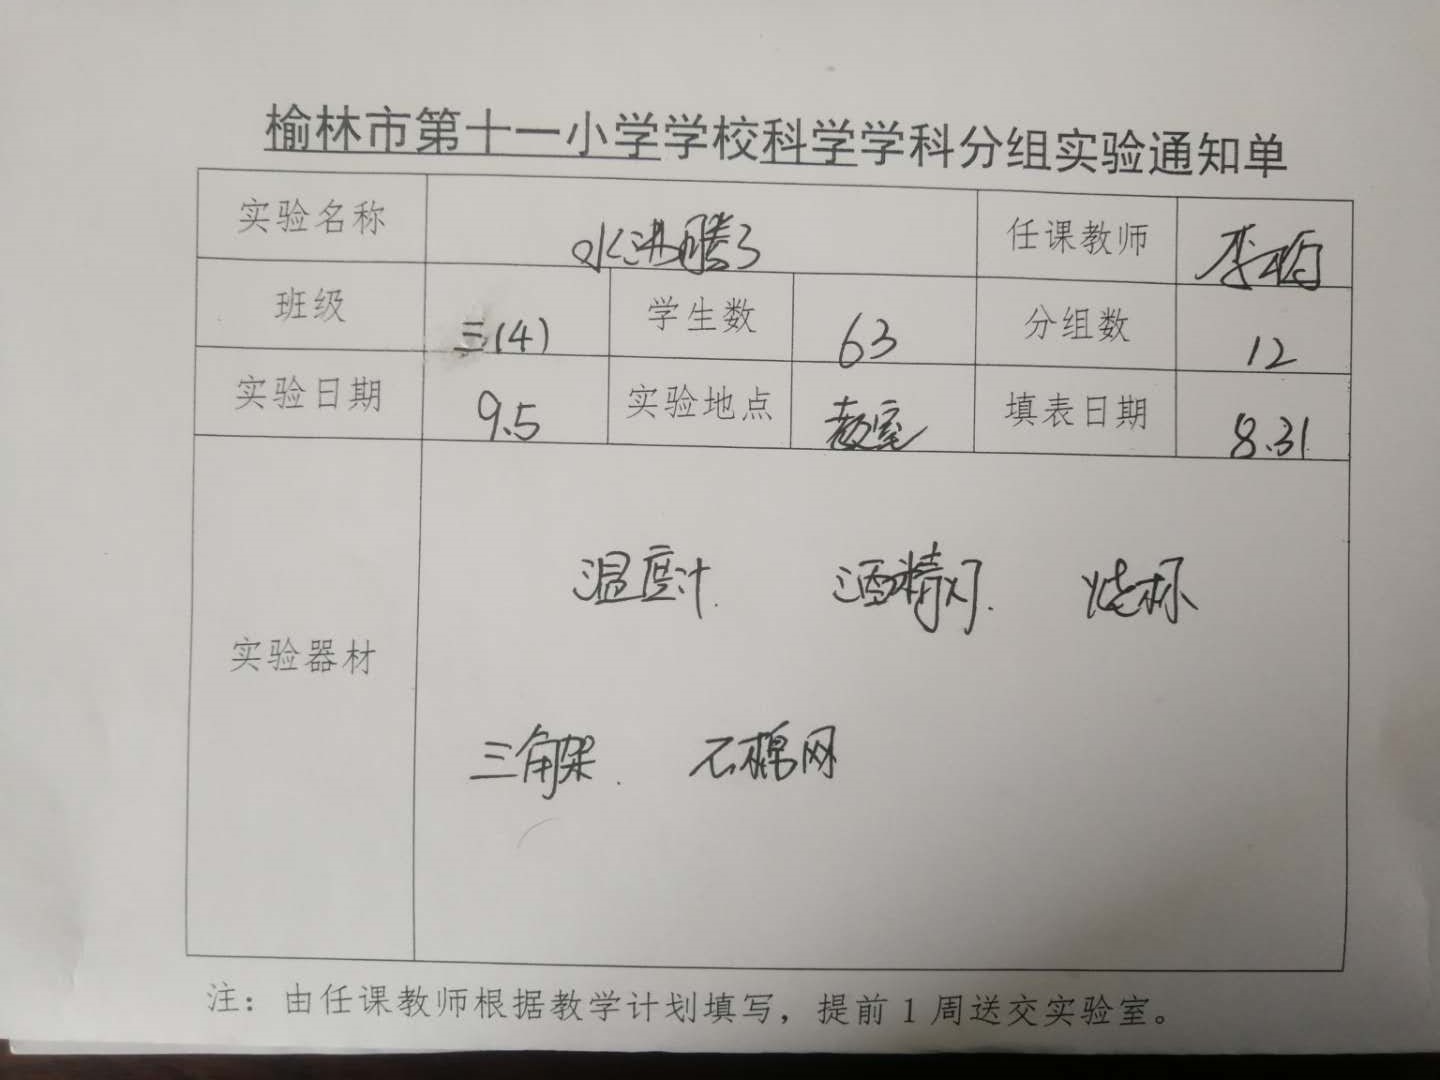 榆林市第十一小学学校科学学科分组实验通知单
实验名称 水沸腾了 任课教师 李
班级 三(4) 学生数 63 分组数 12
实验日期 9.5 实验地点 教室 填表日期 8.31
温度计. 酒精灯. 烧杯
实验器材
三角架. 石棉网
注：由任课教师根据教学计划填写，提前1周送交实验室。